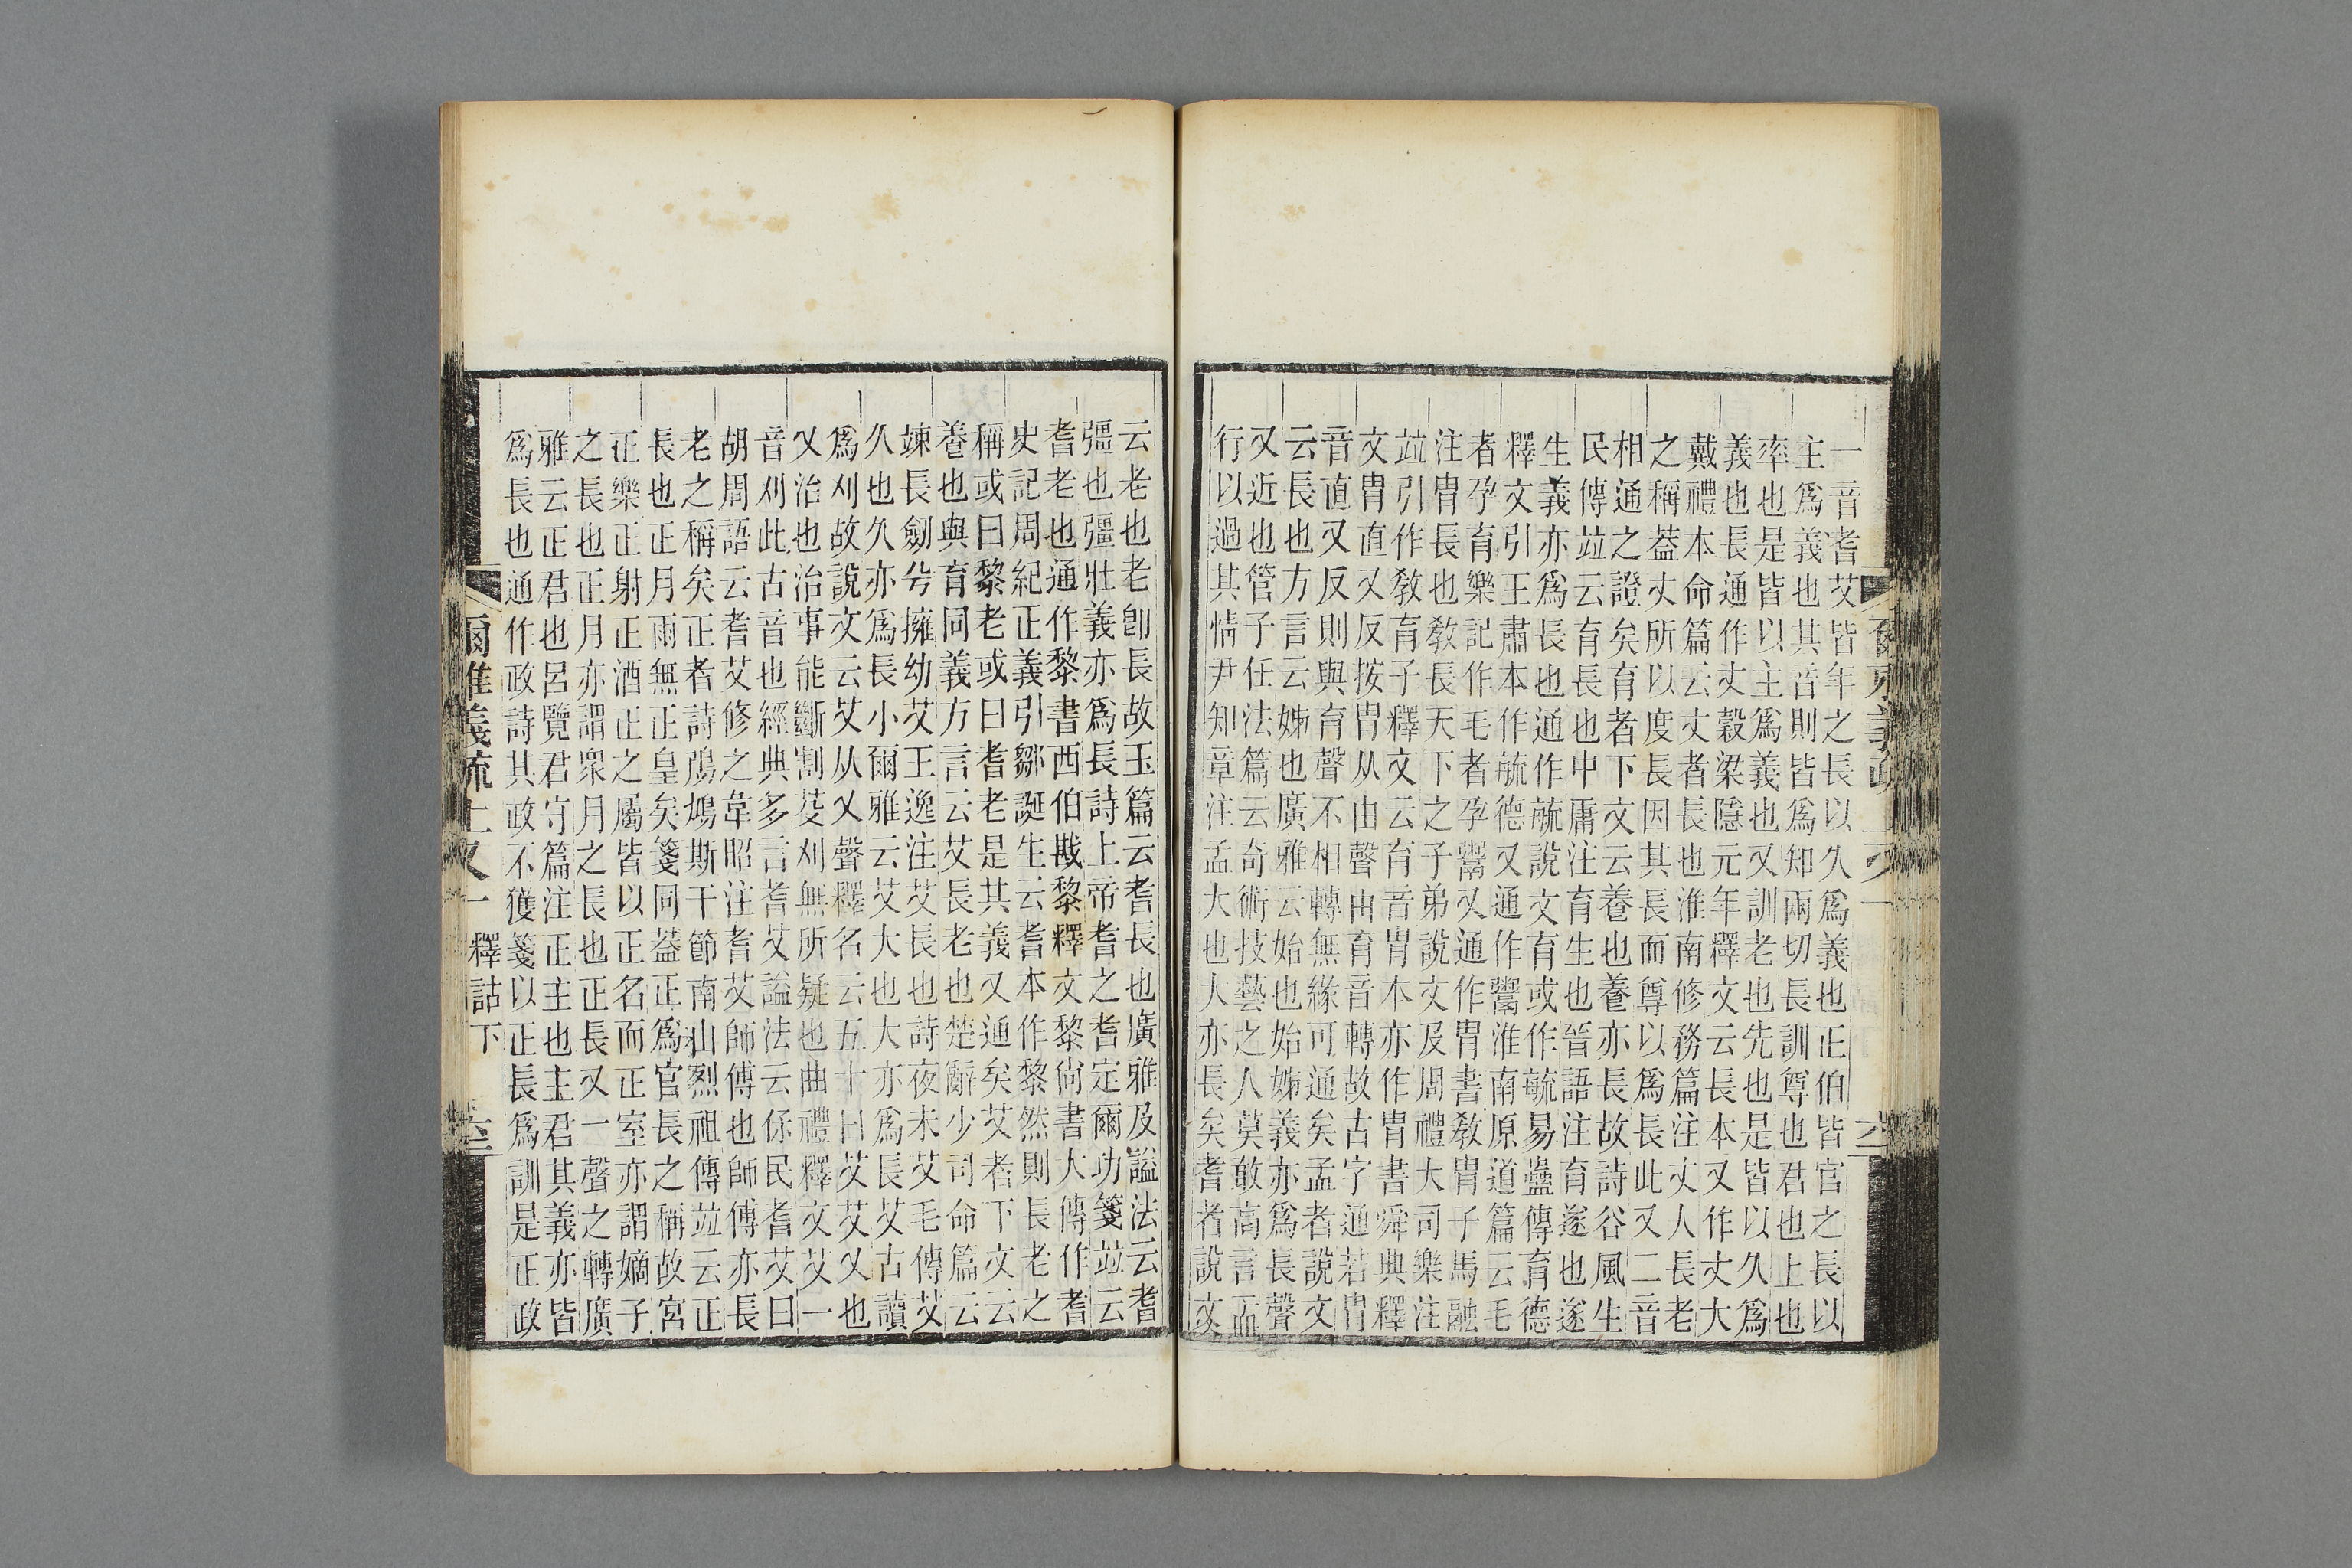 一音耆艾皆年之長以久爲義也正伯皆官之長以
主爲義也其音則皆爲知兩切長訓尊也君也上也
率也是皆以主爲義也又訓老也先也是皆以久爲
義也長通作丈穀梁隱元年釋文云長本又作丈大
戴禮本命篇云丈者長也淮南修務篇注丈人長老
之稱葢丈所以度長因其長而尊以爲長此又二音
相通之證矣育者下文云養也養亦長故詩谷風生
民傳竝云育長也中庸注育生也晉語注育遂也遂
生義亦爲長也通作毓說文育或作毓易蠱傳育德
釋文引王肅本作毓德又通作鬻淮南原道篇云毛
者孕育樂記作毛者孕鬻又通作胄書敎胄子馬融
注胄長也敎長天下之子弟說文及周禮大司樂注
竝引作敎育子釋文云育音胄本亦作胄書舜典釋
文胄直又反按胄从由聲由育音轉故古字通若胄
音直又反則與育聲不相轉無緣可通矣孟者說文
云長也方言云姊也廣雅云始也始姊義亦爲長聲
又近也管子任法篇云奇術技藝之人莫敢高言孟
行以過其情尹知章注孟大也大亦長矣耆者說文
云老也老卽長故玉篇云耆長也廣雅及謚法云耆
彊也彊壯義亦爲長詩上帝耆之耆定爾功箋竝云
耆老也通作黎書西伯戡黎釋文黎尙書大傳作耆
史記周紀正義引鄒誕生云耆本作黎然則長老之
稱或曰黎老或曰耆老是其義又通矣艾者下文云
養也與育同義方言云艾長老也楚辭少司命篇云
竦長劒兮擁幼艾王逸注艾長也詩夜未艾毛傳艾
久也久亦爲長小爾雅云艾大也大亦爲長艾古讀
爲刈故說文云艾从乂聲釋名云五十曰艾艾乂也
乂治也治事能斷割芟刈無所疑也曲禮釋文艾一
音刈此古音也經典多言耆艾謚法云保民耆艾曰
胡周語云耆艾修之韋昭注耆艾師傅也師傅亦長
老之稱矣正者詩鳲鳩斯干節南山烈祖傳竝云正
長也正月雨無正皇矣箋同葢正爲官長之稱故宮
正樂正射正酒正之屬皆以正名而正室亦謂嫡子
之長也正月亦謂衆月之長也正長又一聲之轉廣
雅云正君也呂覽君守篇注正主也主君其義亦皆
爲長也通作政詩其政不獲箋以正長爲訓是正政
爾雅義疏上又一 釋詁下